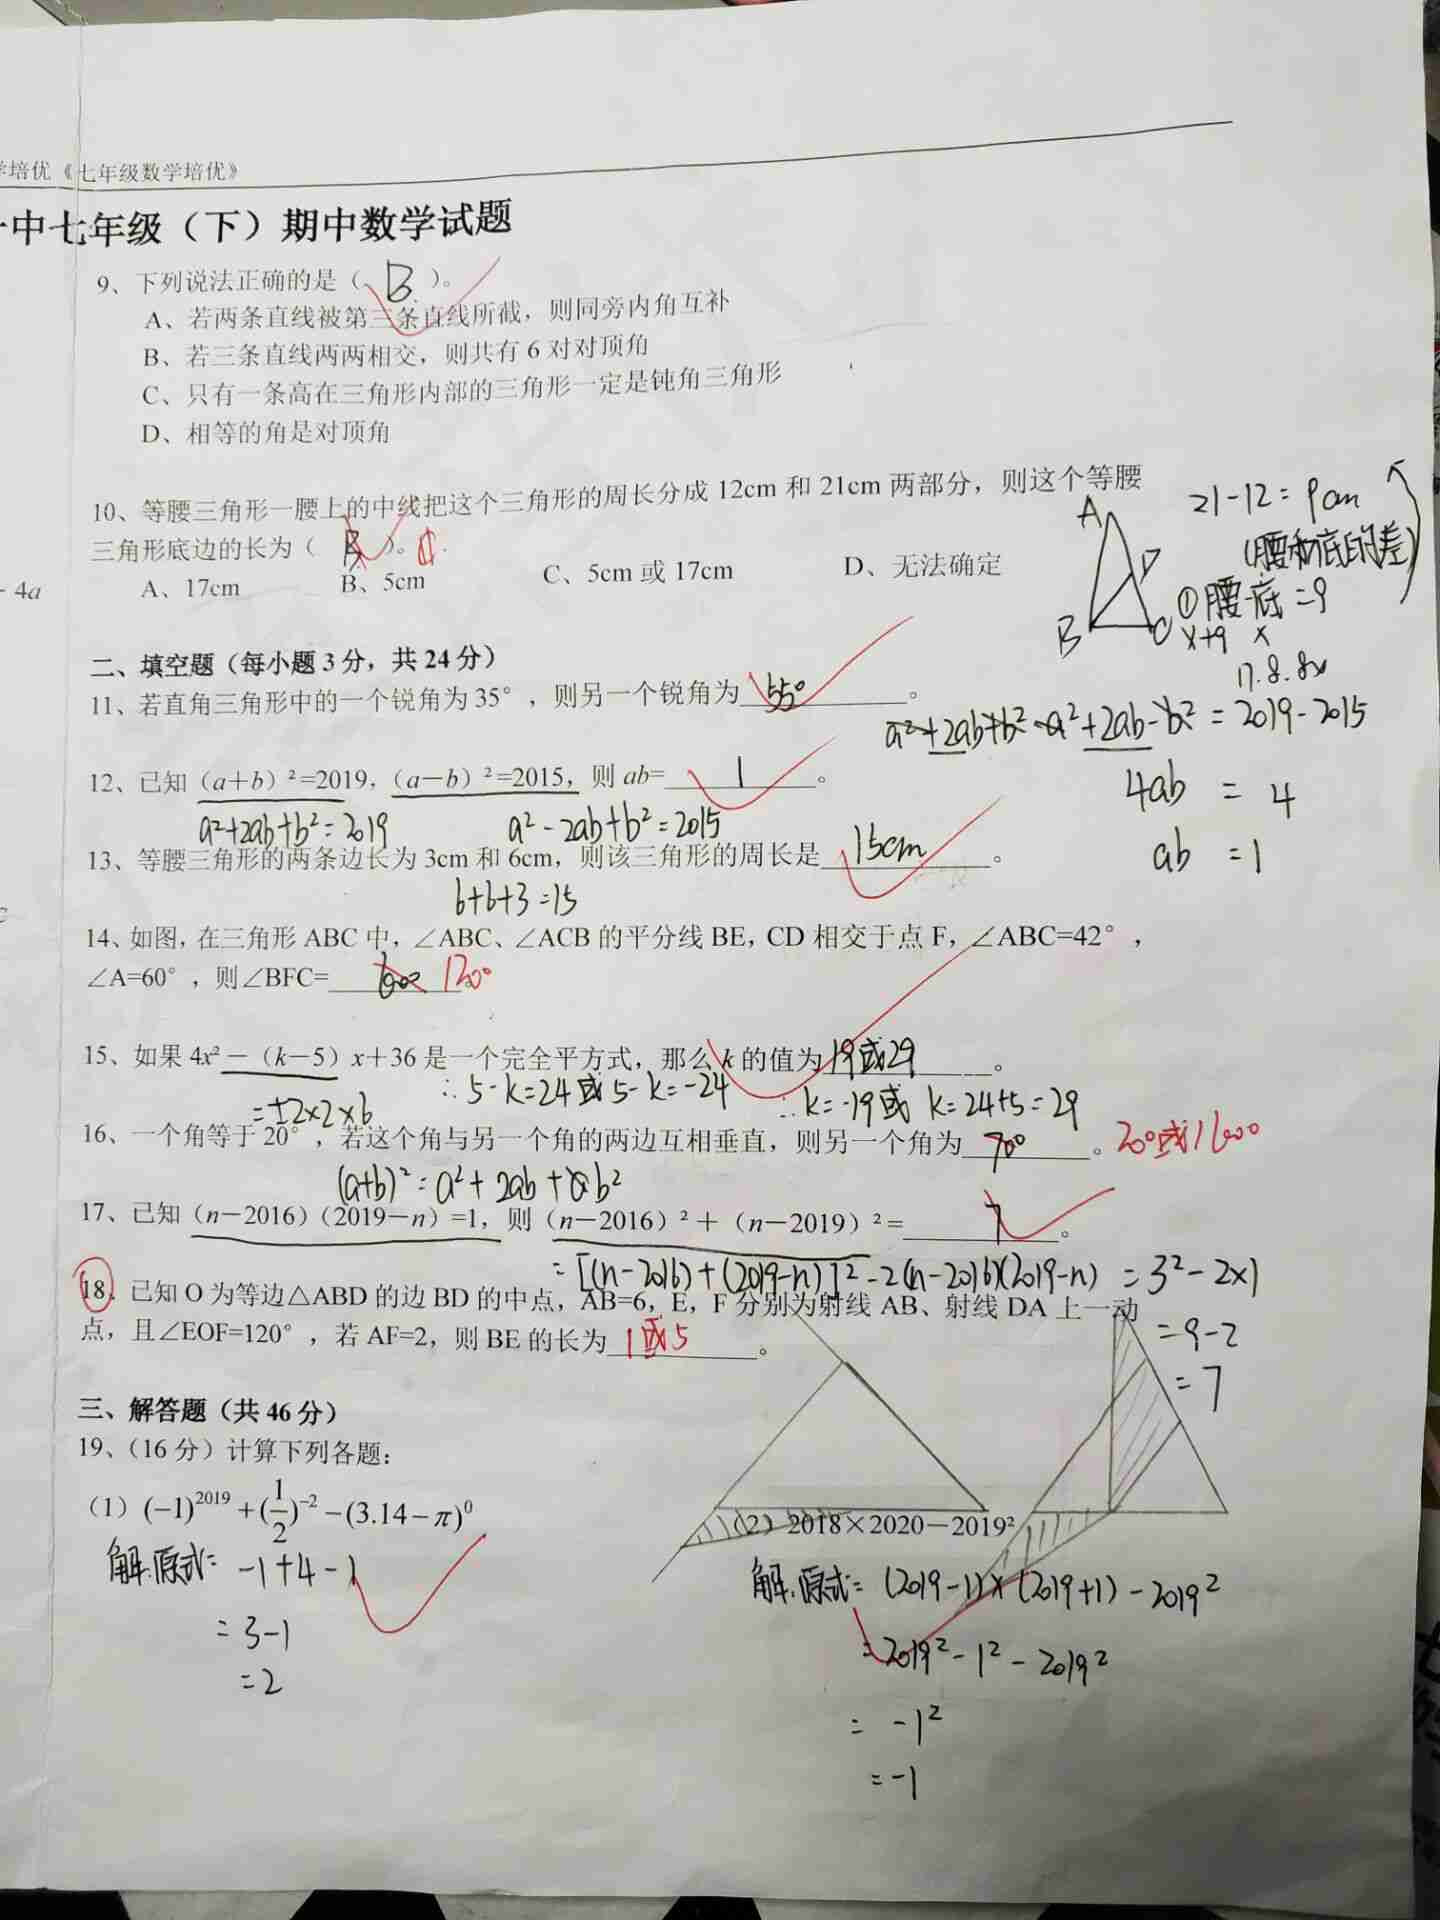 学培优《七年级数学培优》
一中七年级（下）期中数学试题
9、下列说法正确的是（ B ）。
A、若两条直线被第三条直线所截，则同旁内角互补
B、若三条直线两两相交，则共有 6 对对顶角
C、只有一条高在三角形内部的三角形一定是钝角三角形
D、相等的角是对顶角
10、等腰三角形一腰上的中线把这个三角形的周长分成 12cm 和 21cm 两部分，则这个等腰
三角形底边的长为（ B ）。
A、17cm B、5cm C、5cm 或 17cm D、无法确定
A
D
B
C
21-12=9cm
(腰和底的差)
①腰-底=9
x+9 x
- 4a
二、填空题（每小题 3 分，共 24 分）
11、若直角三角形中的一个锐角为 35°，则另一个锐角为 55° 。
a²+2ab+b²-a²+2ab-b²=2019-2015
12、已知（a＋b）²=2019,（a－b）²=2015，则 ab= 1 。
4ab = 4
a²+2ab+b²=2019 a²-2ab+b²=2015
ab =1
13、等腰三角形的两条边长为 3cm 和 6cm，则该三角形的周长是 15cm 。
6+6+3=15
14、如图, 在三角形 ABC 中, ∠ABC、∠ACB 的平分线 BE, CD 相交于点 F, ∠ABC=42°，
∠A=60°，则∠BFC= 60° 120°
15、如果 4x²－（k－5）x＋36 是一个完全平方式，那么 k 的值为 19或29 。
=±2×2×6 ∴5-k=24或5-k=-24 ∴k=-19或 k=24+5=29
16、一个角等于 20°，若这个角与另一个角的两边互相垂直，则另一个角为 70° 。20°或160°
(a+b)²=a²+2ab+b²
17、已知（n－2016）（2019－n）=1，则（n－2016）²＋（n－2019）²= 7 。
=[(n-2016)+(2019-n)]²-2(n-2016)(2019-n) =3²-2×1
=9-2
=7
18、已知 O 为等边△ABD 的边 BD 的中点，AB=6，E，F 分别为射线 AB、射线 DA 上一动
点，且∠EOF=120°，若 AF=2，则 BE 的长为 1或5 。
三、解答题（共 46 分）
19、（16 分）计算下列各题:
（1）(−1)²⁰¹⁹+(1/2)⁻²−(3.14−π)⁰
解:原式= -1+4-1
=3-1
=2
（2）2018×2020－2019²
解:原式= (2019-1)×(2019+1)-2019²
=2019²-1²-2019²
= -1²
=-1